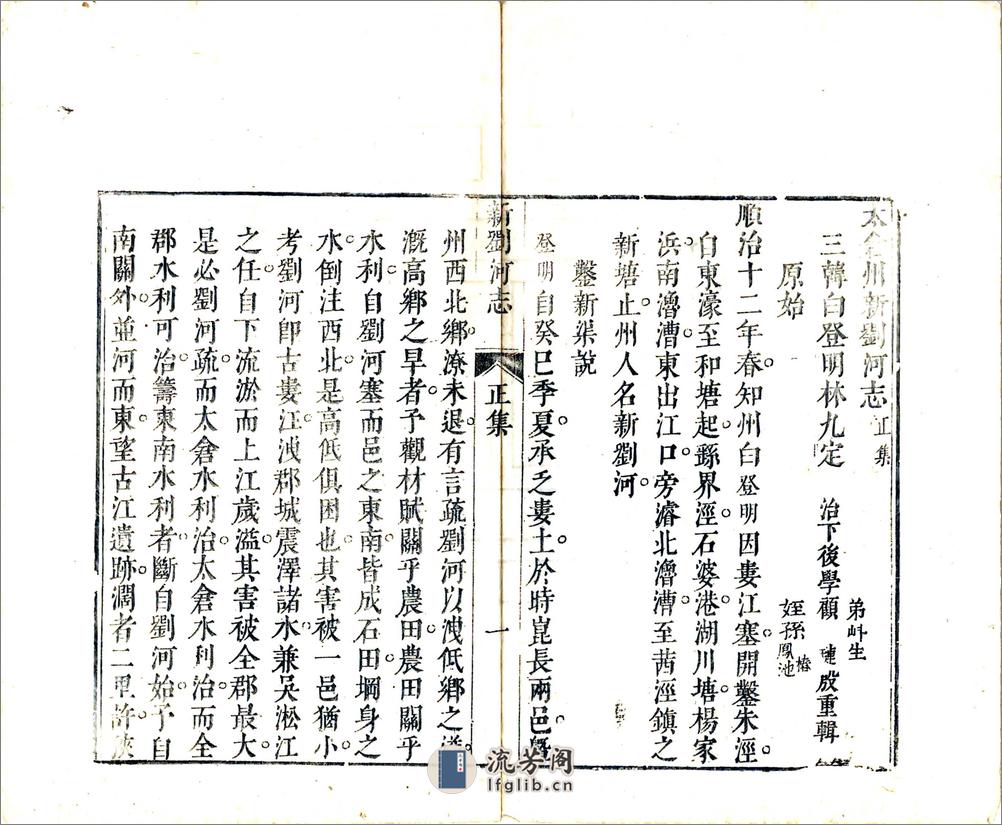 太倉州新劉河志 正集
三韓白登明林九定 治下後學顧
弟
成重輯
姪孫鳳池
椿
原始
順治十二年春知州白登明因婁江塞開鑿朱涇
自東濠至和塘起繇界涇石婆港湖川塘楊家
浜南漕漕東出江口旁濬北漕漕至茜涇鎮之
新塘止州人名新劉河
鑿新渠說
登明自癸巳季夏承乏婁土於時崑長兩邑暨
新劉河志 正集 一
州西北鄉潦未退有言疏劉河以洩低鄉之
溉高鄉之旱者予觀材賦關乎農田農田關乎
水利自劉河塞而邑之東南皆成石田堈身之
水倒注西北是高低俱困也其害被一邑猶小
考劉河卽古婁江洩郡城震澤諸水兼吳淞江
之任自下流淤而上江歲溢其害被全郡最大
是必劉河疏而太倉水利治太倉水利治而全
郡水利可治籌東南水利者斷自劉河始予自
南關外並河而東望古江遺跡濶者二里許狹
流芳阁
lfglib.cn